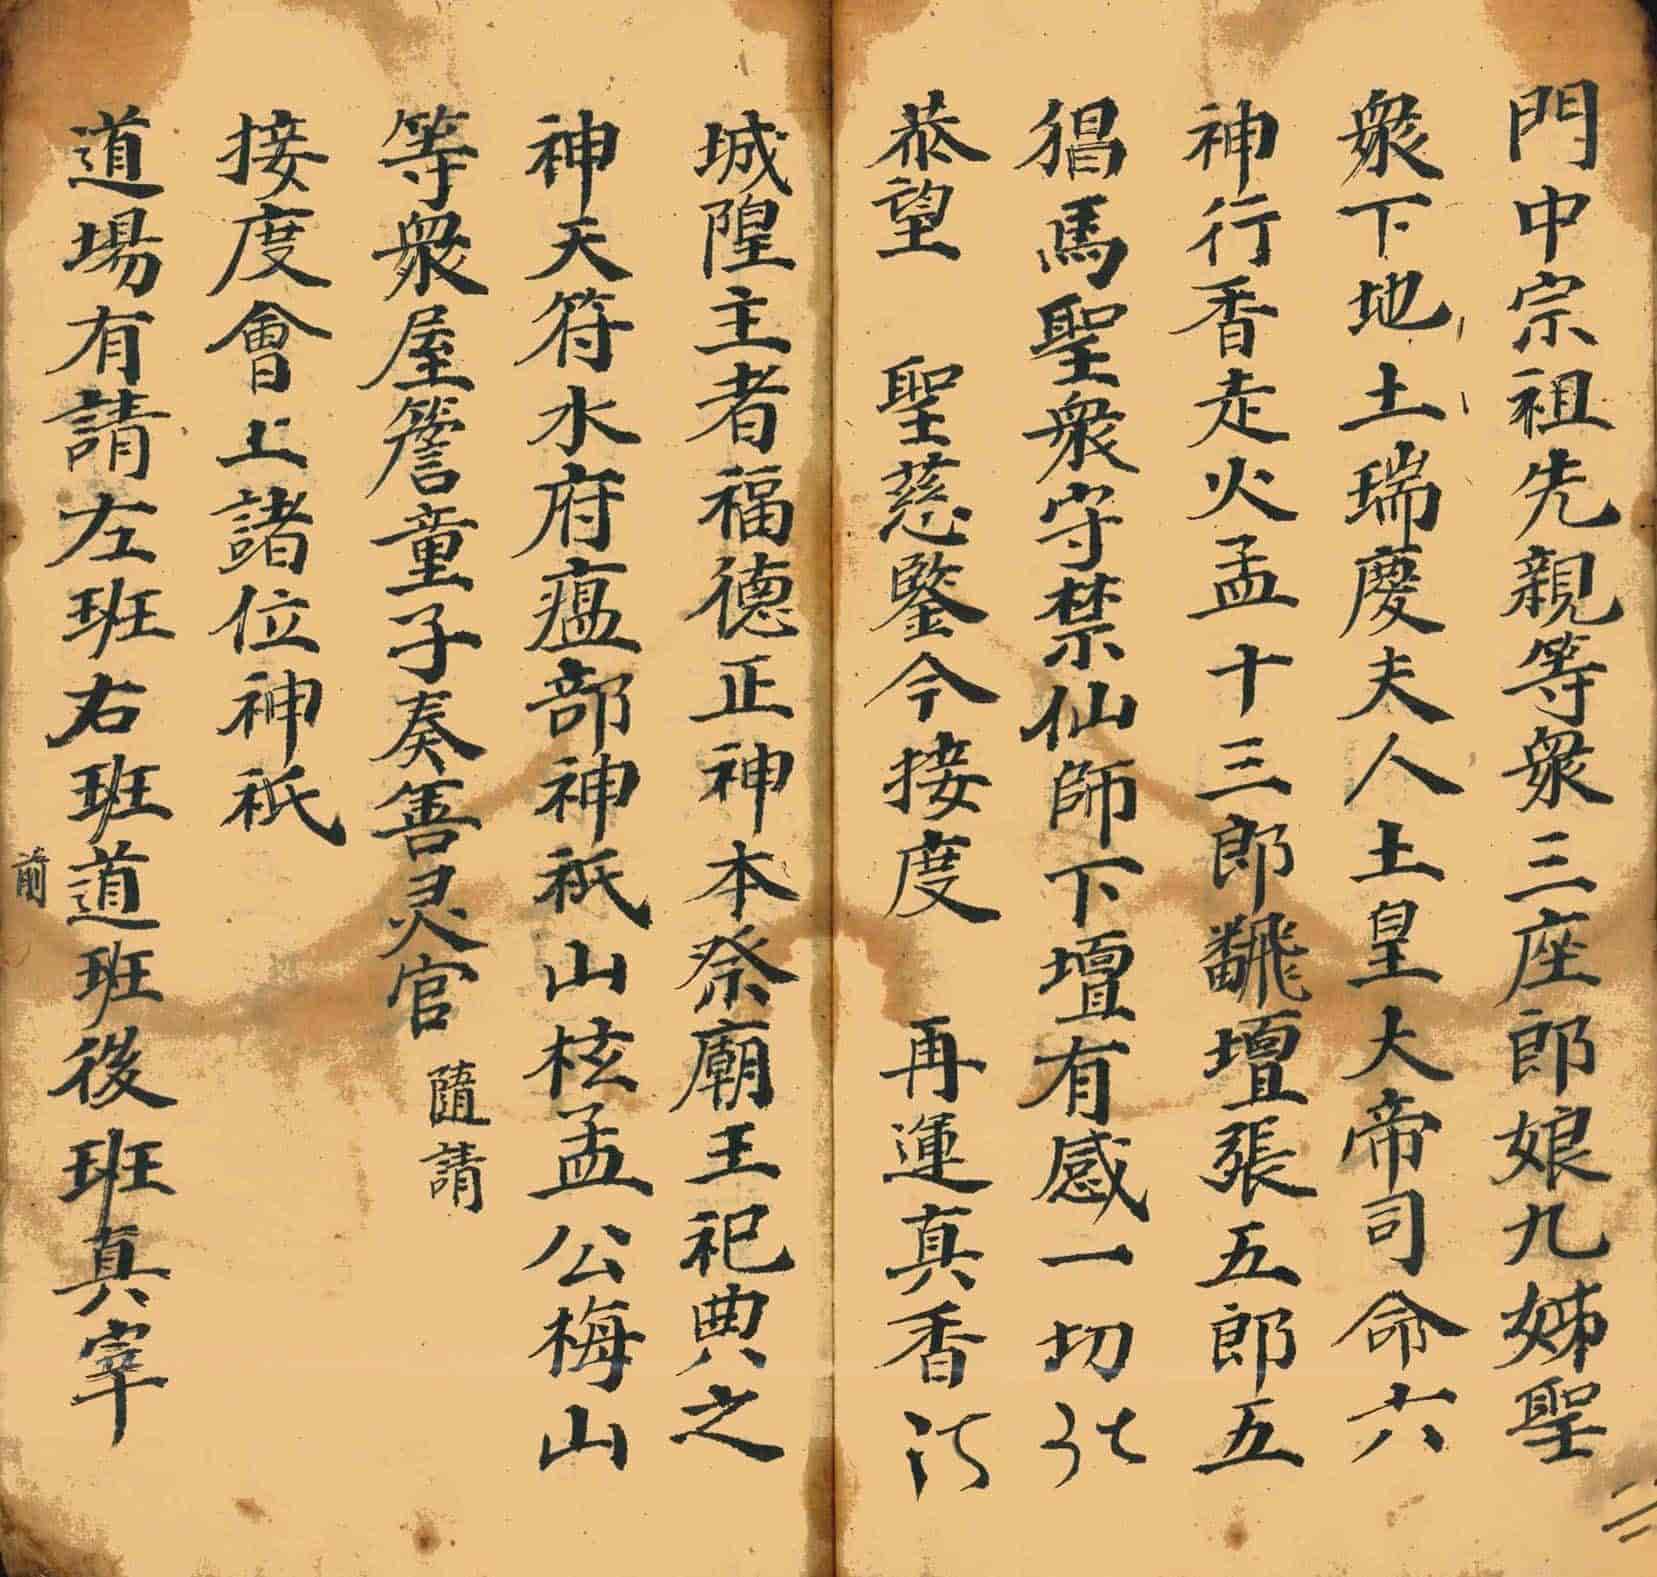 門中宗祖先親等衆三座郎娘九姊聖
衆下地土瑞慶夫人土皇大帝司命六
神行香走火孟十三郎翻壇張五郎五
猖馬聖衆守禁仙師下壇有感一切
恭望 聖慈鑒今接度 再運真香
城隍主者福德正神本祭廟王祀典之
神天符水府瘟部神祇山柱孟公梅山
等衆屋簷童子奏善灵官 隨請
接度會上諸位神祇
道場有請左班右班道班後班真宰
前